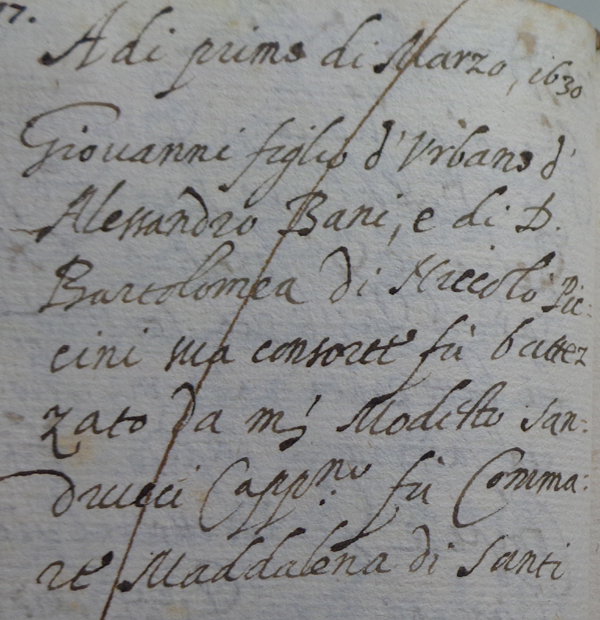 17.
Adi primo di Marzo, 1630
Giouanni figlio d' Vrbano d'
Alessandro Bani, e di D.
Bartolomea di Niccolò Pic:
cini sua consorte fù battez
zato da mj Modesto San:
drucci Capp.no fù Comma:
re Maddalena di Santi